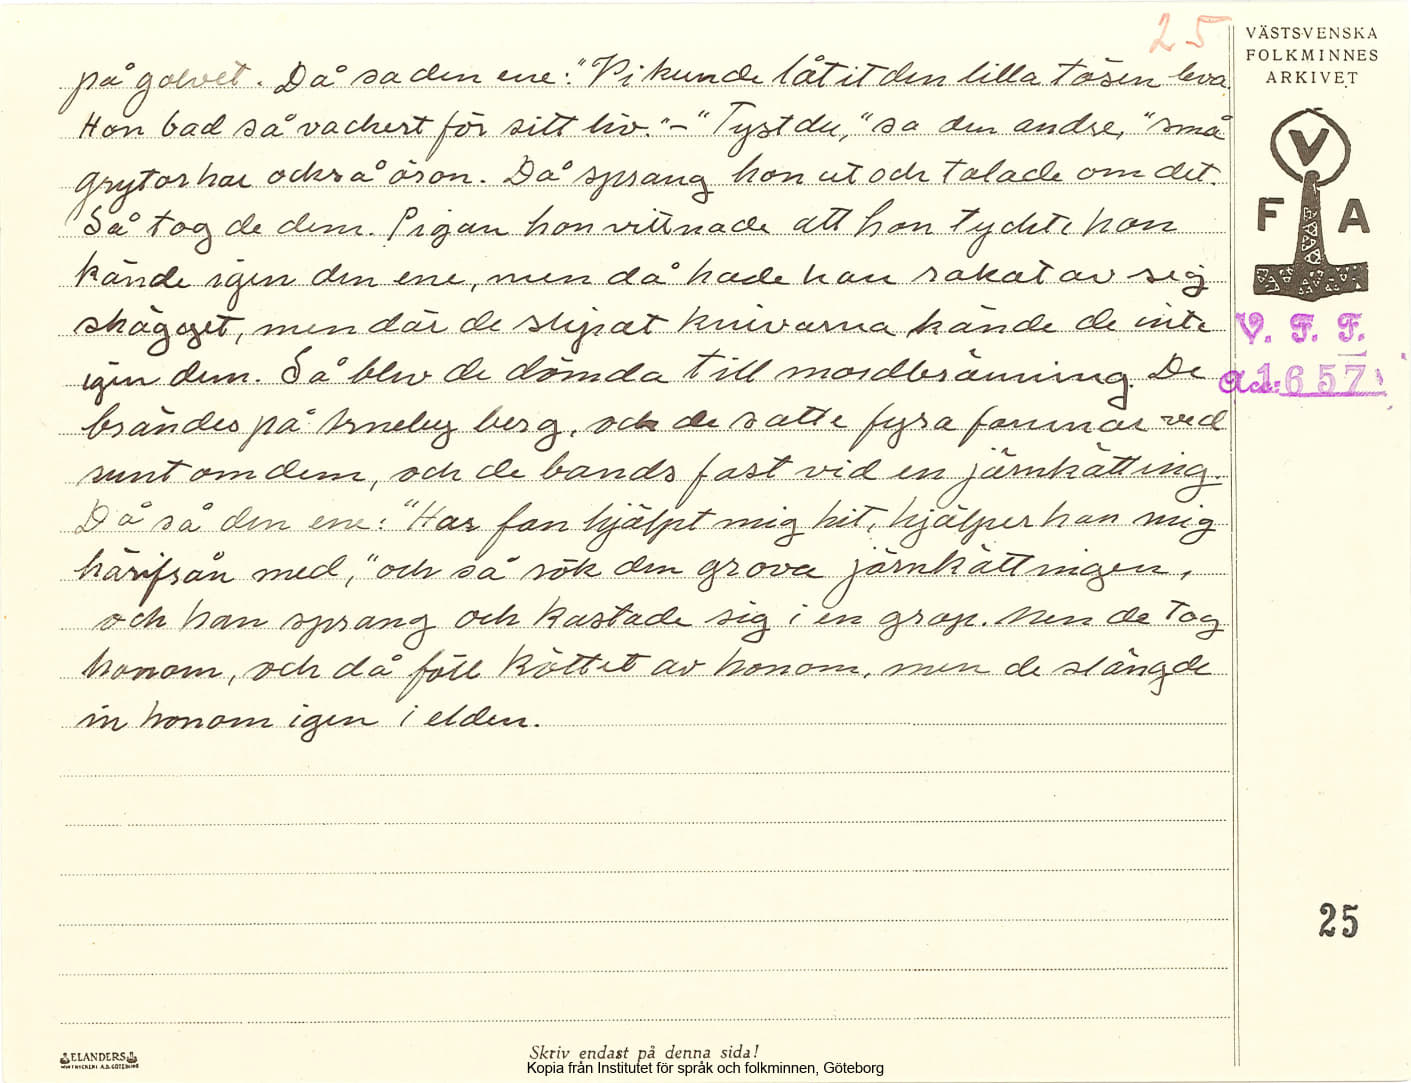 25
VÄSTSVENSKA
FOLKMINNES
ARKIVET
V
F A
V. F. F.
Acc: 1657
på golvet. Då sa den ene: "Vi kunde låtit den lilla tösen leva.
Hon bad så vackert för sitt liv." – "Tyst du," sa den andre, "små
grytor har också öron. Då sprang hon ut och talade om det.
Så tog de dem. Pigan hon vittnade att hon tyckte hon
kände igen den ene, men då hade han rakat av sig
skägget, men där de slipat knivarna kände de inte
igen dem. Så blev de dömda till mordbränning. De
brändes på berg, och de satte fyra famnar ved
runt om dem, och de bands fast vid en järnkätting.
Då sa den ene: "Har fan hjälpt mig hit, hjälper han mig
härifrån med," och så rök den grova järnkättingen,
och han sprang och kastade sig i en grop. Men de tog
honom, och då föll köttet av honom, men de slängde
in honom igen i elden.
25
ELANDERS
Skriv endast på denna sida!
Kopia från Institutet för språk och folkminnen, Göteborg